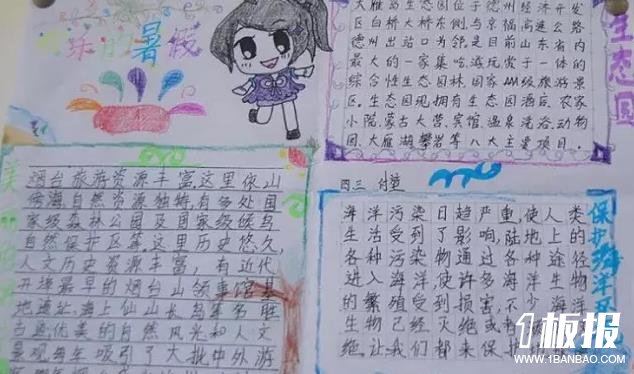 快乐的暑假
大雁岛生态园位于德州经济开发
区白桥大桥东侧,与京福高速公路
德州出站口为邻是目前山东省内
最大的一家集吃游玩赏于一体的
综合性生态园林,国家AAA级旅游景
区,生态园现拥有生态园酒店,农家
小院,蒙古大营,宾馆,温泉洗浴,动物
园,大雁湖,攀岩等八大主要项目.
生态园
烟台旅游资源丰富,这里依山
傍海,自然资源独特,有多处国
家级森林公园及国家级候鸟
自然保护区等.这里历史悠久,
人文历史资源丰富,有近代
开埠最早的烟台山领事馆基
地遗址,海上仙山长岛等多胜
当道,优美的自然风光和人文
景观每年吸引了大批中外游
四三
海洋污染日趋严重,使人类
生活受到了影响,陆地上的
各种污染物通过各种途径
进入海洋使许多海洋生物
的繁殖受到损害,不少海洋
生物已经灭绝或
绝.让我们都来保护
保护海洋
1板报
WWW.1BANBAO.COM